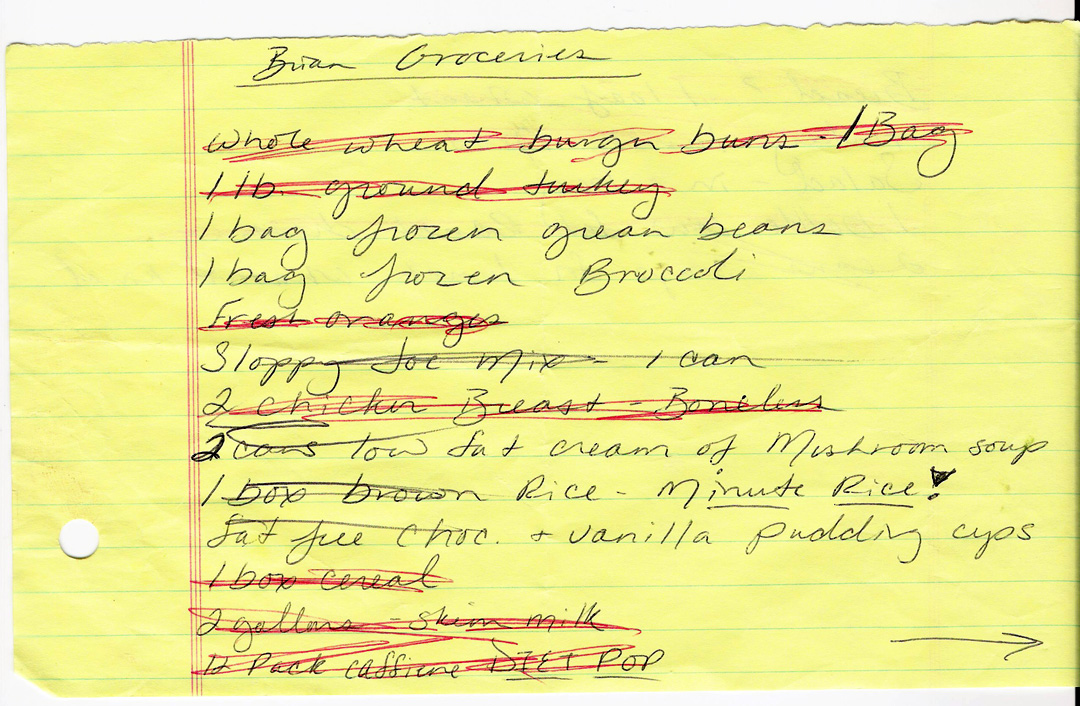 Brian Groceries
Whole wheat burger buns - 1 Bag
1 lb. ground turkey
1 bag frozen green beans
1 bag frozen Broccoli
Fresh oranges
Sloppy Joe Mix - 1 can
2 chicken Breast - Boneless
2 cans low fat cream of Mushroom soup
1 box brown Rice - Minute Rice!
fat free choc. + vanilla pudding cups
1 box cereal
2 gallons - skim milk
12 Pack caffiene DIET POP